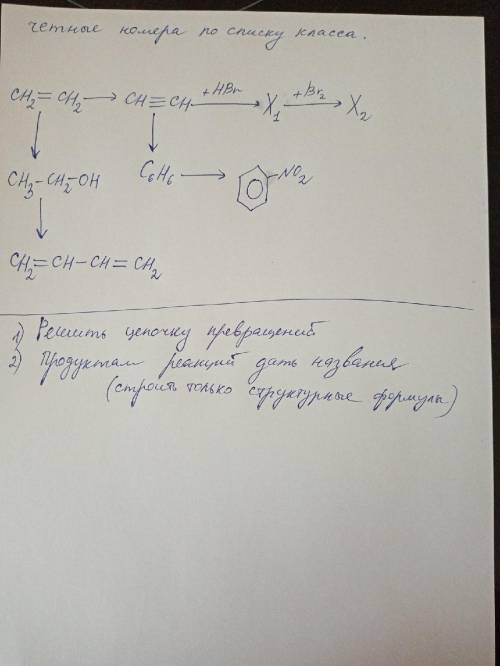 четные номера по списку класса.
CH₂=CH₂ → CH≡CH +HBr → X₁ +Br₂ → X₂
CH₃-CH₂-OH C₆H₆ → NO₂
CH₂=CH-CH=CH₂
1) Решить цепочку превращений
2) Продуктам реакций дать названия
(строить только структурные формулы)